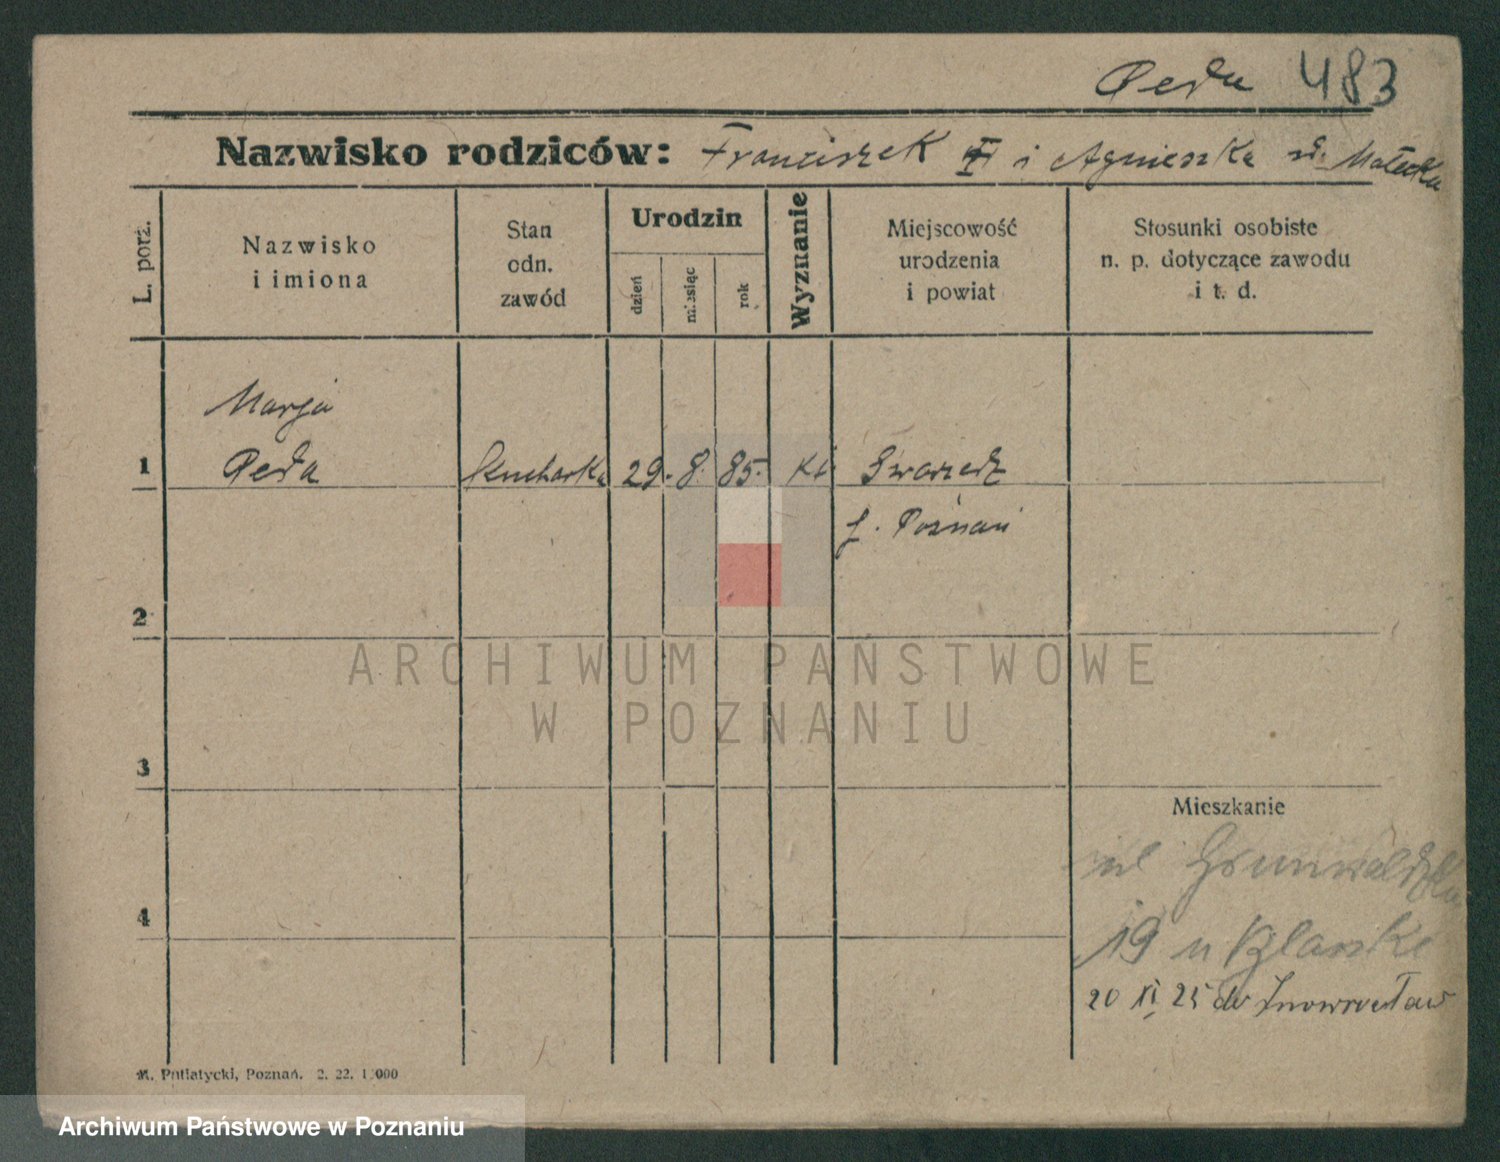 Peda 483
Nazwisko rodziców: Franciszek i Agnieszka Małecka
L. porz.
Nazwisko
i imiona
Stan
odn.
zawód
Urodzin
dzień
miesiąc
rok
Wyznanie
Miejscowość
urodzenia
i powiat
Stosunki osobiste
n. p. dotyczące zawodu
i t. d.
Marja
1 Peda kucharka 29. 8. 85. kł Swarzedz
p. Poznań
2
ARCHIWUM PAŃSTWOWE
W POZNANIU
3
Mieszkanie
ul Grunwaldzka
4
19 u
20 XI 25 do Inowrocław
M. Putiatycki, Poznań. 2. 22. 1.000
Archiwum Państwowe w Poznaniu